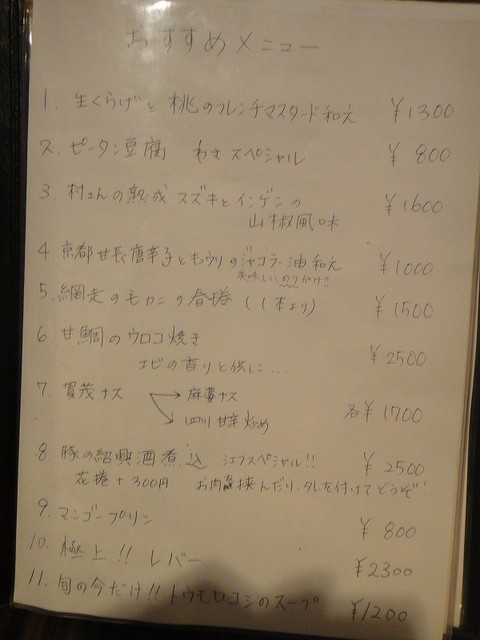 おすすめメニュー
1. 生くらげと 桃のフレンチマスタード和え ¥1300
2. ピータン豆腐 わさスペシャル ¥800
3. 村さんの熟成 スズキとインゲンの ¥1600
山椒風味
4 京都甘長唐辛子ときゅうりのジャコラー油和え ¥1000
美味しいのり付け!!
5. 網走のモカニの春捲 (1本より) ¥1500
6 甘鯛のウロコ焼き
エビの香りと供に... ¥2500
7. 賀茂ナス → 麻婆ナス
→ 四川甘辛炒め 各¥1700
8. 豚の紹興酒煮込 シェフスペシャル!! ¥2500
花捲+300円 お肉挟んだり、タレを付けてどうぞ
9. マンゴープリン ¥800
10. 極上!! レバー ¥2300
11. 旬の今だけ!! トウモロコシのスープ ¥1200